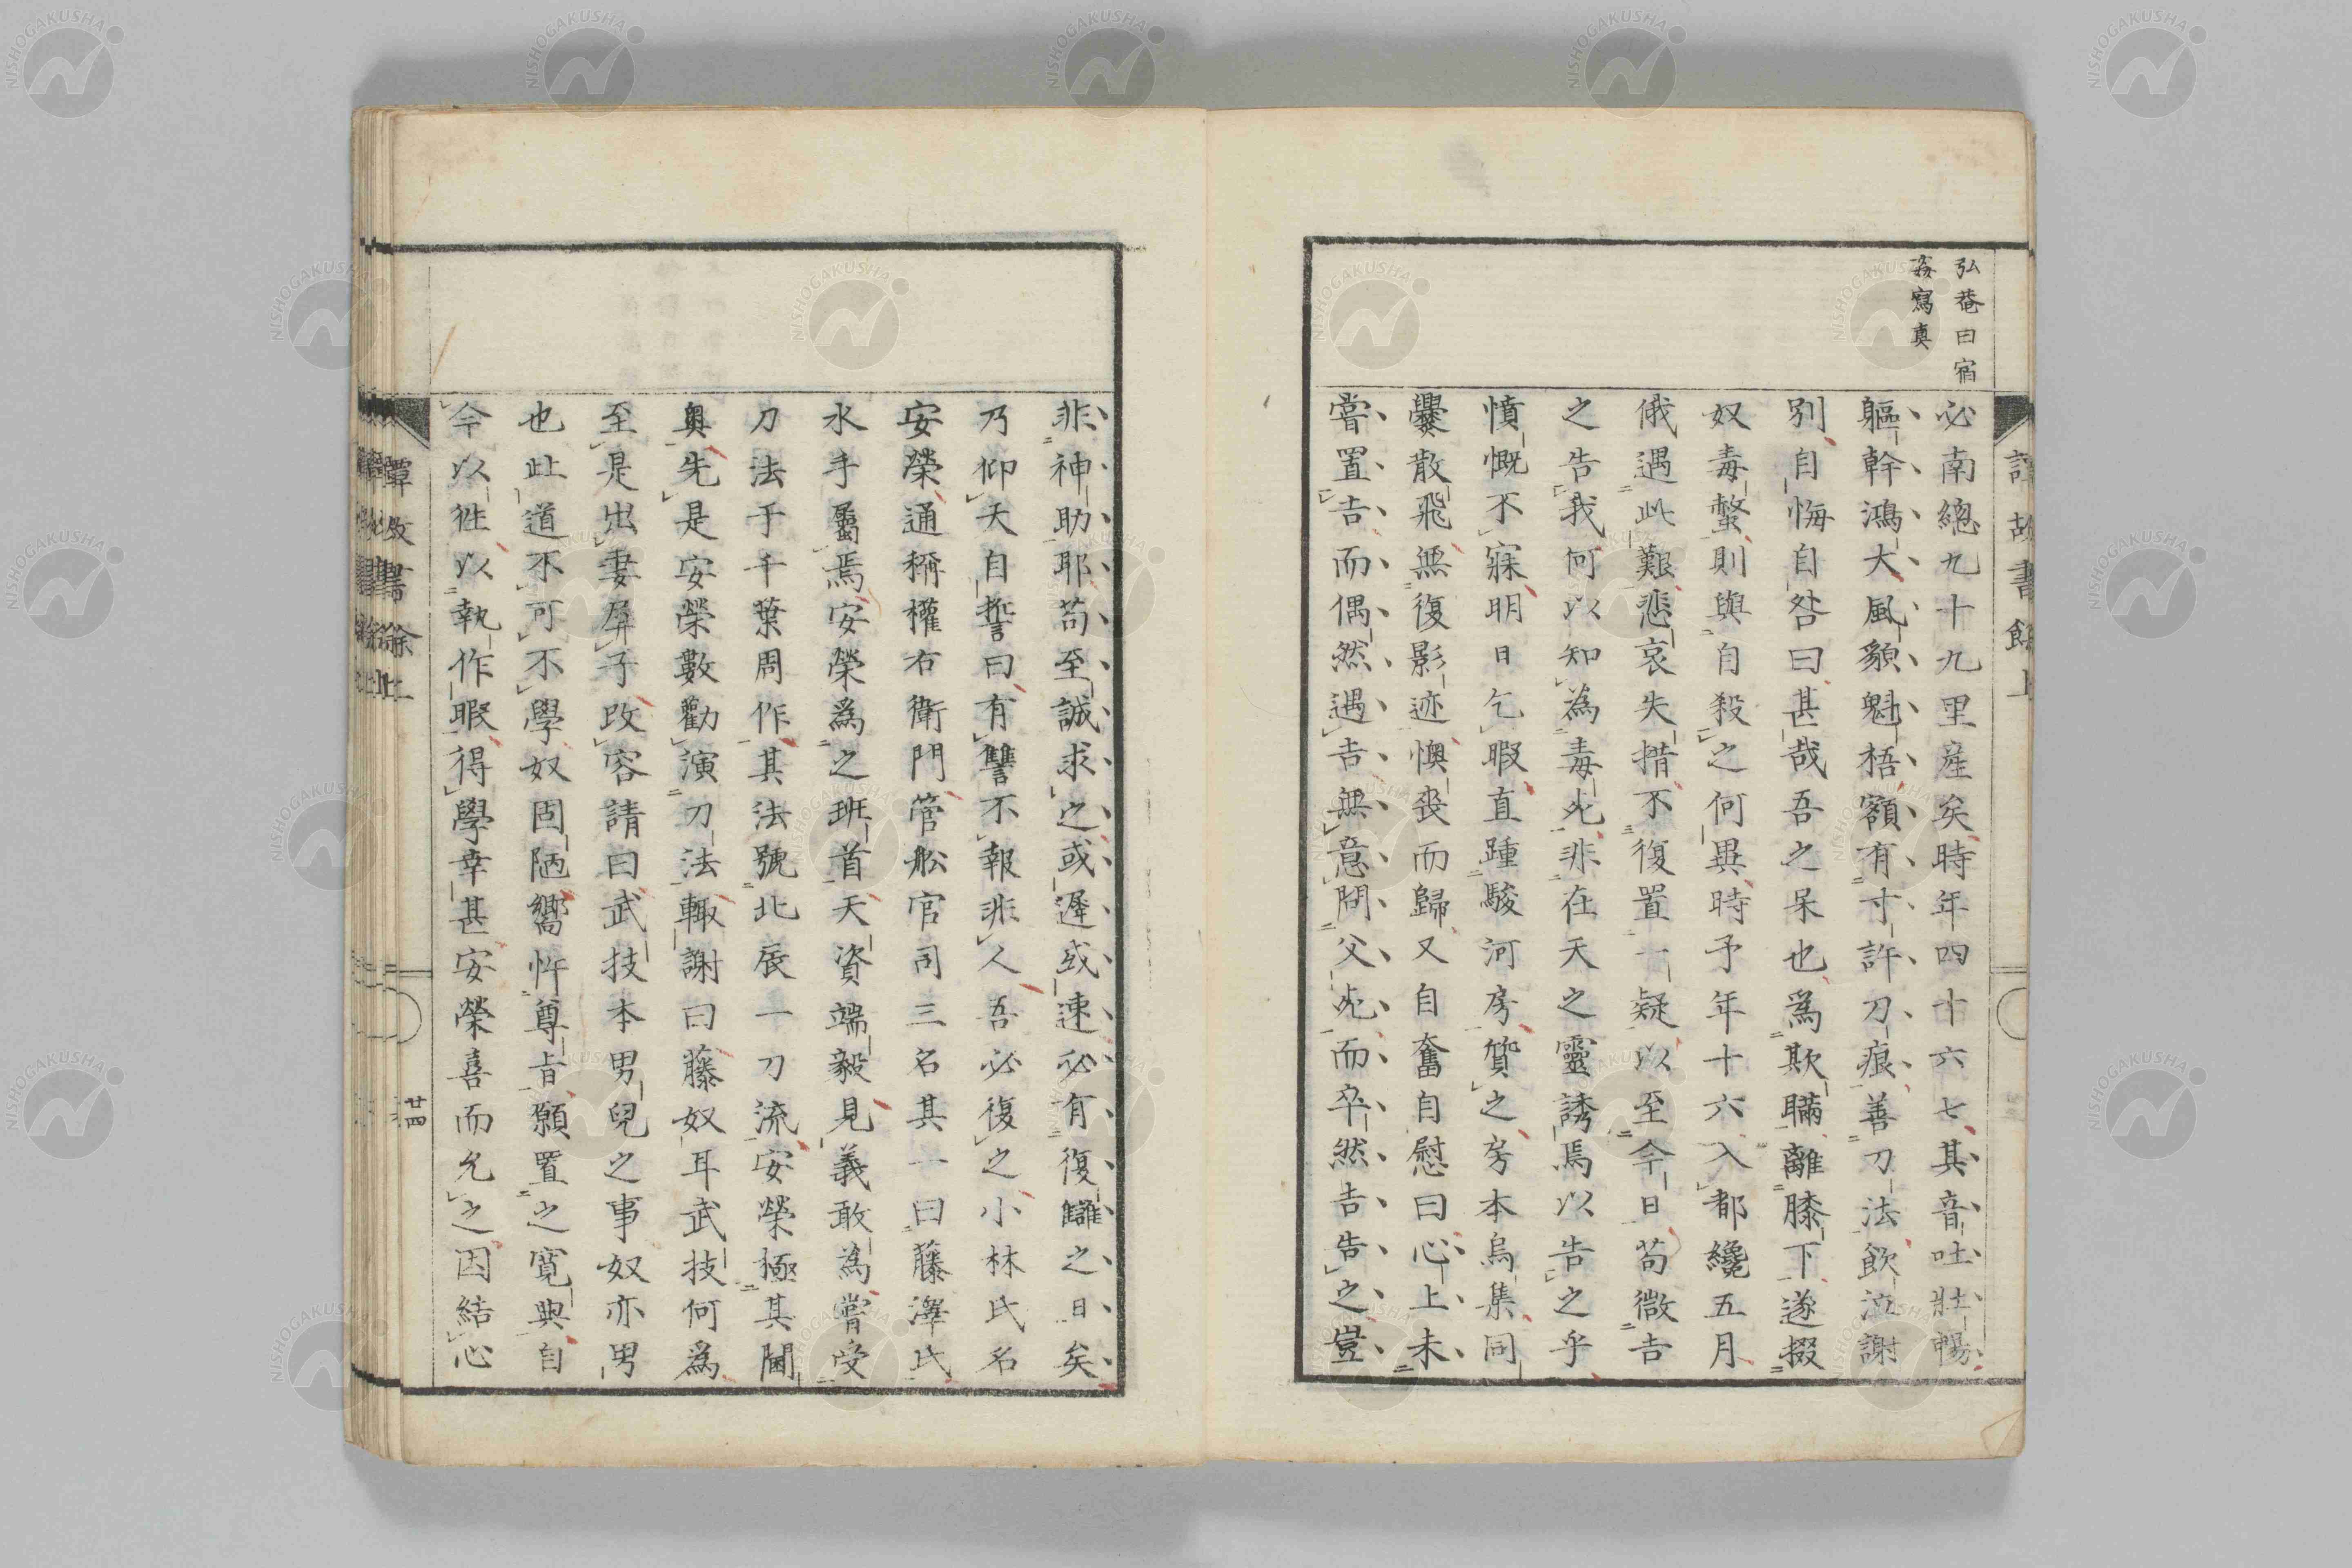 弘菴曰宿
姦寫真
必南總九十九里産矣時年四十六七其音吐壯暢
軀幹鴻大風貌魁梧額有寸許刀痕善刀法飲泣謝
別自悔自咎曰甚哉吾之呆也爲欺瞞離膝下遂掇
奴毒螫則與自殺之何異時予年十六入都纔五月
俄遇此艱悲哀失措不復置一疑以至今日苟微吉
之告我何以知為毒死非在天之靈誘焉以告之乎
憤慨不寐明日乞暇直踵駿河房質之房本烏集同
爨散飛無復影迹懊喪而歸又自奮自慰曰心上未
嘗置吉而偶然遇吉無意問父死而卒然吉告之豈
非神助耶苟至誠求之或遲或速必有復讎之日矣
乃仰天自誓曰有讐不報非人吾必復之小林氏名
安榮通稱權右衛門管舩官司三名其一曰藤澤氏
水手屬焉安榮為之班首天資端毅見義敢為嘗受
刀法于千葉周作其法號北辰一刀流安榮極其閫
奧先是安榮數勸演刀法輙謝曰藤奴耳武技何爲
至是出妻屏子改容請曰武技本男兒之事奴亦男
也此道不可不學奴固陋嚮忤尊旨願置之寛典自
今以徃以執作暇得學幸甚安榮喜而允之因結心
廿四